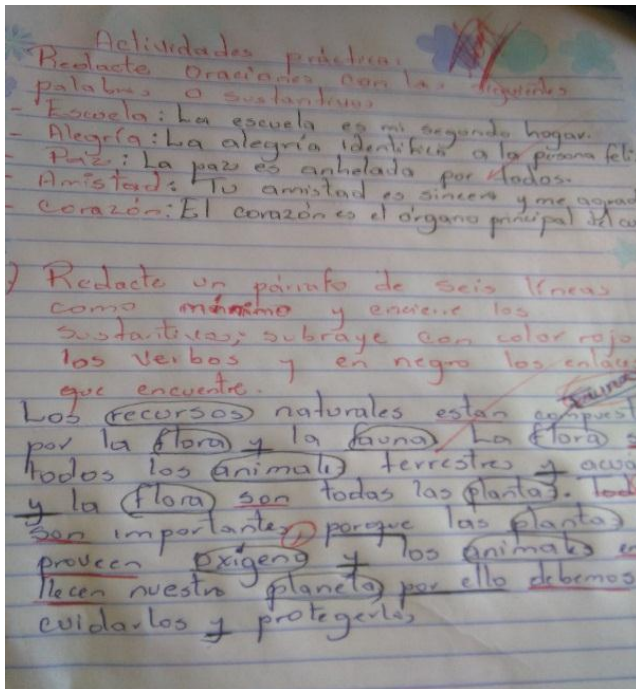 Actividades prácticas
Redacte Oraciones con las siguientes
palabras o sustantivos
- Escuela: La escuela es mi segundo hogar.
- Alegría: La alegría identifica a la persona feli
- Paz: La paz es anhelada por todos.
- Amistad: Tu amistad es sincera y me agrad
- Corazón: El corazón es el órgano principal del cu
) Redacte un párrafo de seis líneas
como mínimo y encierre los
sustantivos; subraye con color rojo
los verbos y en negro los enlaces
que encuentre.
fauna
Los recursos naturales están compuest
por la flora y la fauna. La flora s
todos los animales terrestres y acuá
y la flora son todas las plantas. Tod
son importantes, porque las plantas
proveen oxígeno y los animales en
llecen nuestro planeta por ello debemos
cuidarlos y protegerlos